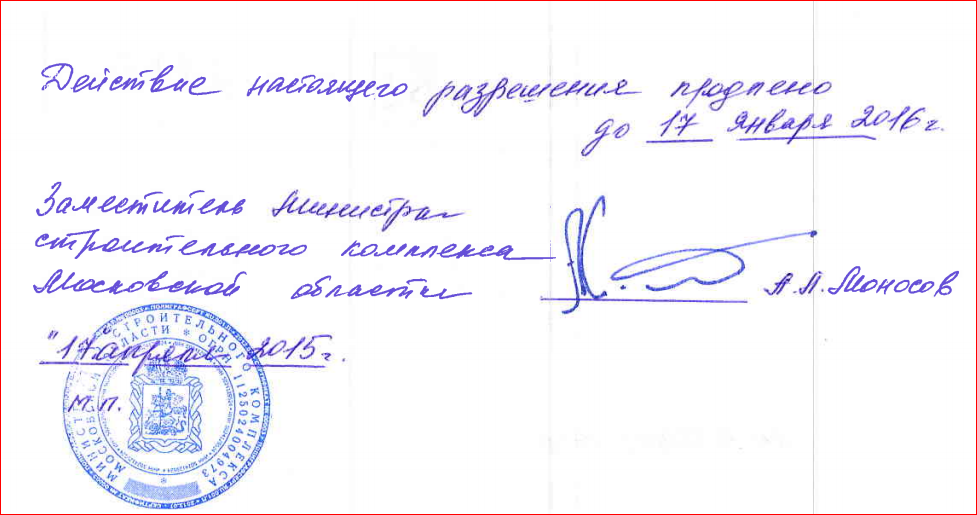 Действие настоящего разрешения продлено
до 17 января 2016 г.
Заместитель министра
строительного комплекса
Московской области
А.П. Моносов
"17" апреля 2015 г.
м.п.
МИНИСТЕРСТВО СТРОИТЕЛЬНОГО КОМПЛЕКСА
МОСКОВСКОЙ ОБЛАСТИ * ОГРН 1125024004973 *